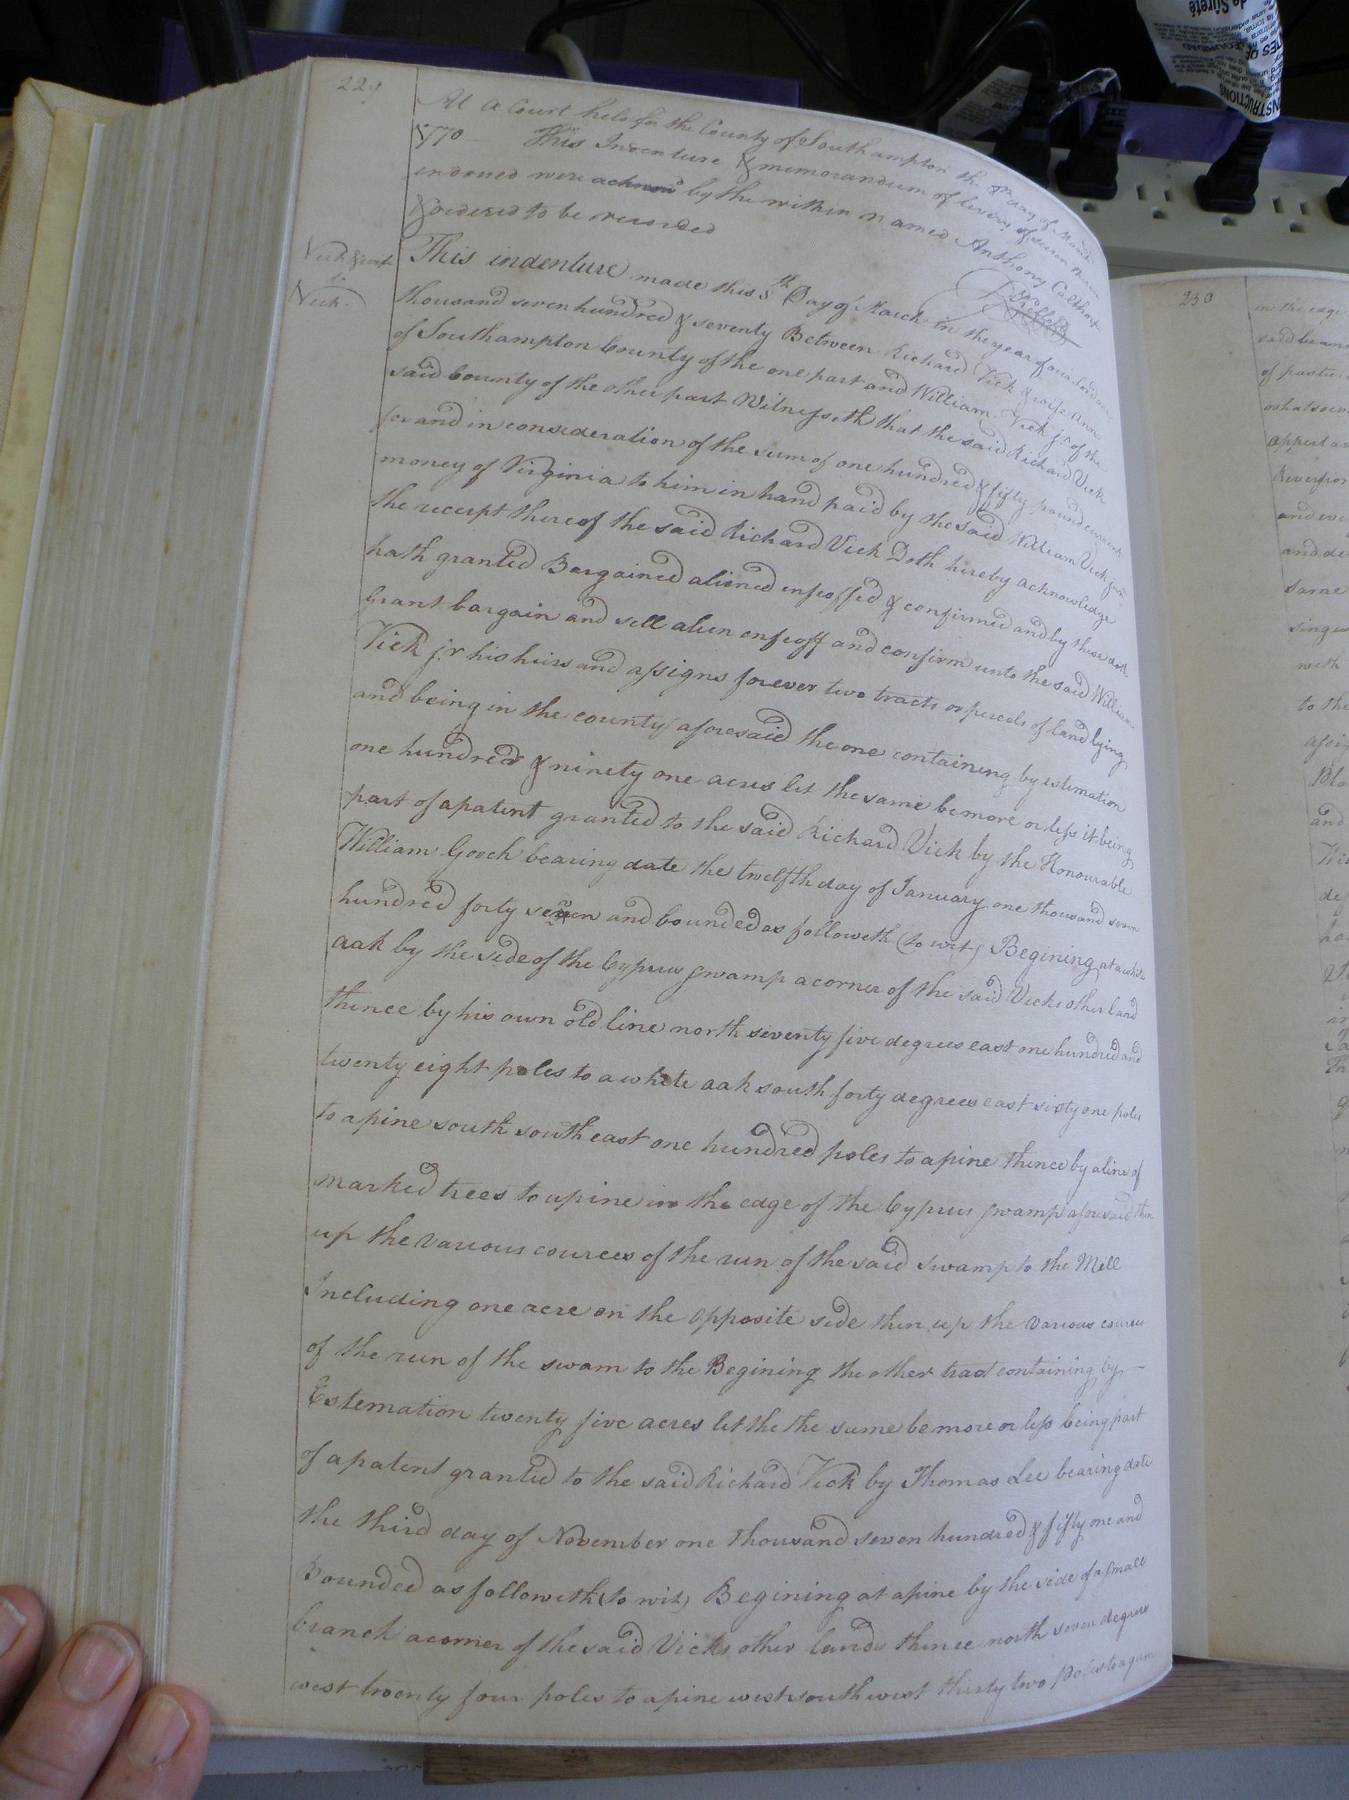 229
At a Court held for the County of Southampton the 8th day of March
1770 This Indenture & memorandum of livery of seisin thereon
endorsed were acknowd by the within named Anthony Calthorp
& ordered to be recorded
Vick & wife
to
Vick
This indenture made this 8th Day of March in the year of our Lord one
thousand seven hundred & seventy Between Richard Vick & wife Ann
of Southampton County of the one part and William Vick jr of the
said County of the other part Witnesseth that the said Richard Vick
for and in consideration of the sum of one hundred & fifty pound current
money of Virginia to him in hand paid by the said William Vick junr
the receipt thereof the said Richard Vick Doth hereby acknowledge
hath granted Bargained aliened enfeoffed & confirmed and by these doth
Grant bargain and sell alien enfeoff and confirm unto the said William
Vick jr his heirs and assigns forever two tracts or percels of land lying
and being in the county aforesaid the one containing by estimation
one hundred & ninety one acres let the same be more or less it being
part of a patent granted to the said Richard Vick by the Honourable
William Gooch bearing date the twelfth day of January one thousand seven
hundred forty seven and bounded as followeth (to wit) Begining at a white
oak by the side of the Cyprus swamp a corner of the said Vicks other land
thence by his own old line north seventy five degrees east one hundred and
twenty eight poles to a white oak south forty degrees east sixty one poles
to a pine south south east one hundred poles to a pine thence by a line of
marked trees to a pine in the edge of the Cyprus swamp aforesaid then
up the various cources of the run of the said swamp to the Mill
Including one acre on the opposite side then up the various cources
of the run of the swam to the Begining the other tract containing by
Estemation twenty five acres let the the same be more or less being part
of a patent granted to the said Richard Vick by Thomas Lee bearing date
the third day of November one thousand seven hundred & fifty one and
Bounded as followeth (to wit) Begining at a pine by the side of a small
branch a corner of the said Vicks other lands thence north seven degrees
west twenty four poles to a pine west south west thirty two Poles to a gum
230
said
of
and
with
to the
and